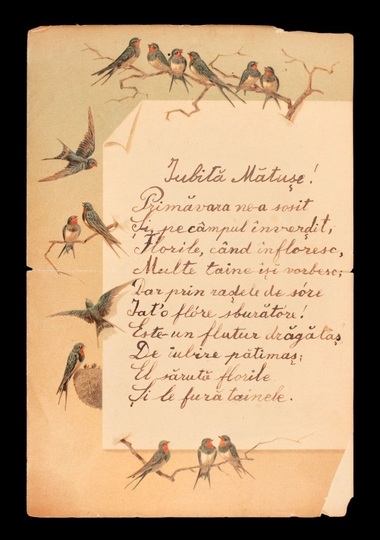 Iubită Mătușe!
Primăvara ne-a sosit
Și pe câmpul înverḑit,
Florile, când înfloresc,
Multe taine își vorbesc;
Dar prin raḑele de sóre
Iat'o flóre sburătóre!
Este un flutur drăgălaș
De iubire pătimaș;
El sărută florile
Și le fură tainele.